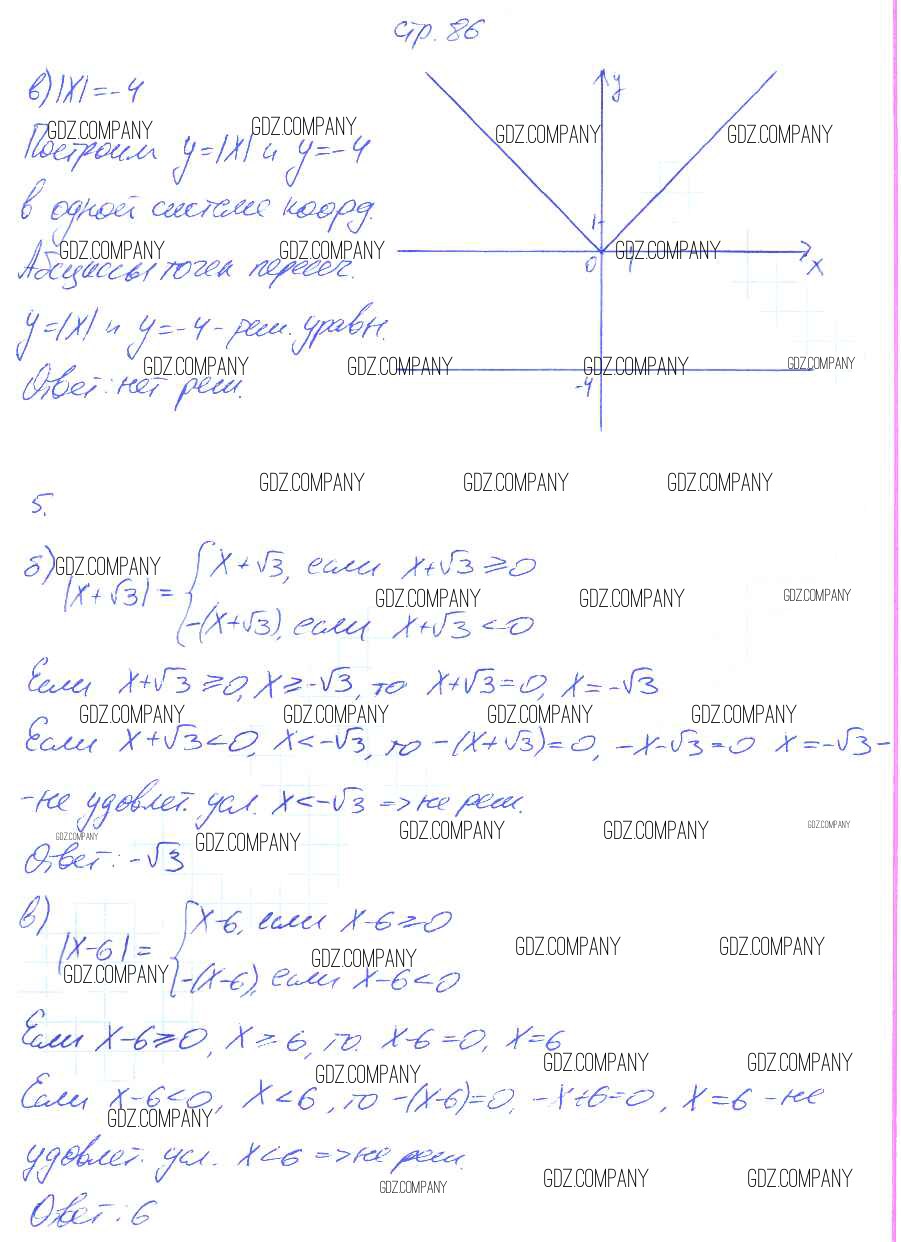 стр. 86
в) |x| = -4
Построим y=|x| и y=-4
в одной системе коорд.
Абсциссы точек пересеч.
y=|x| и y=-4 - реш. уравн.
Ответ: нет реш.
y
1
0 1 x
-4
GDZ.COMPANY GDZ.COMPANY GDZ.COMPANY GDZ.COMPANY
GDZ.COMPANY GDZ.COMPANY GDZ.COMPANY
GDZ.COMPANY GDZ.COMPANY GDZ.COMPANY GDZ.COMPANY
GDZ.COMPANY GDZ.COMPANY GDZ.COMPANY
5.
б) GDZ.COMPANY
|x+√3| = { x+√3, если x+√3 ≥ 0
-(x+√3), если x+√3 < 0
GDZ.COMPANY GDZ.COMPANY GDZ.COMPANY
Если x+√3 ≥ 0, x ≥ -√3, то x+√3 = 0, x = -√3
GDZ.COMPANY GDZ.COMPANY GDZ.COMPANY GDZ.COMPANY
Если x+√3 < 0, x < -√3, то -(x+√3) = 0, -x-√3 = 0 x = -√3 -
- не удовлет. усл. x < -√3 => не реш.
GDZ.COMPANY GDZ.COMPANY GDZ.COMPANY GDZ.COMPANY GDZ.COMPANY
Ответ: -√3
в)
|x-6| = { x-6, если x-6 ≥ 0
-(x-6), если x-6 < 0
GDZ.COMPANY GDZ.COMPANY GDZ.COMPANY GDZ.COMPANY
Если x-6 ≥ 0, x ≥ 6, то x-6 = 0, x = 6
GDZ.COMPANY GDZ.COMPANY GDZ.COMPANY
Если x-6 < 0, x < 6, то -(x-6) = 0, -x+6 = 0, x = 6 - не
GDZ.COMPANY
удовлет. усл. x < 6 => не реш.
GDZ.COMPANY GDZ.COMPANY GDZ.COMPANY
Ответ: 6